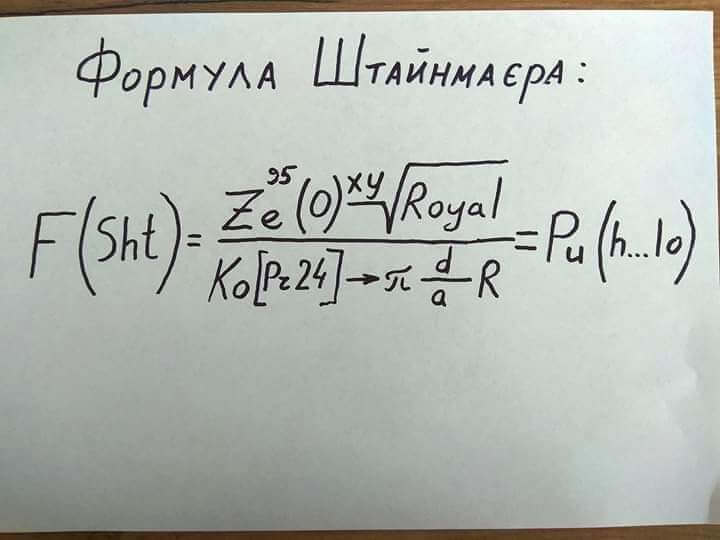 Формула Штайнмаєра:
F(Sht) = Ze⁹⁵(0)ˣʸ√Royal / Ko[Pr24]→π d/a R = Pu(h...lo)